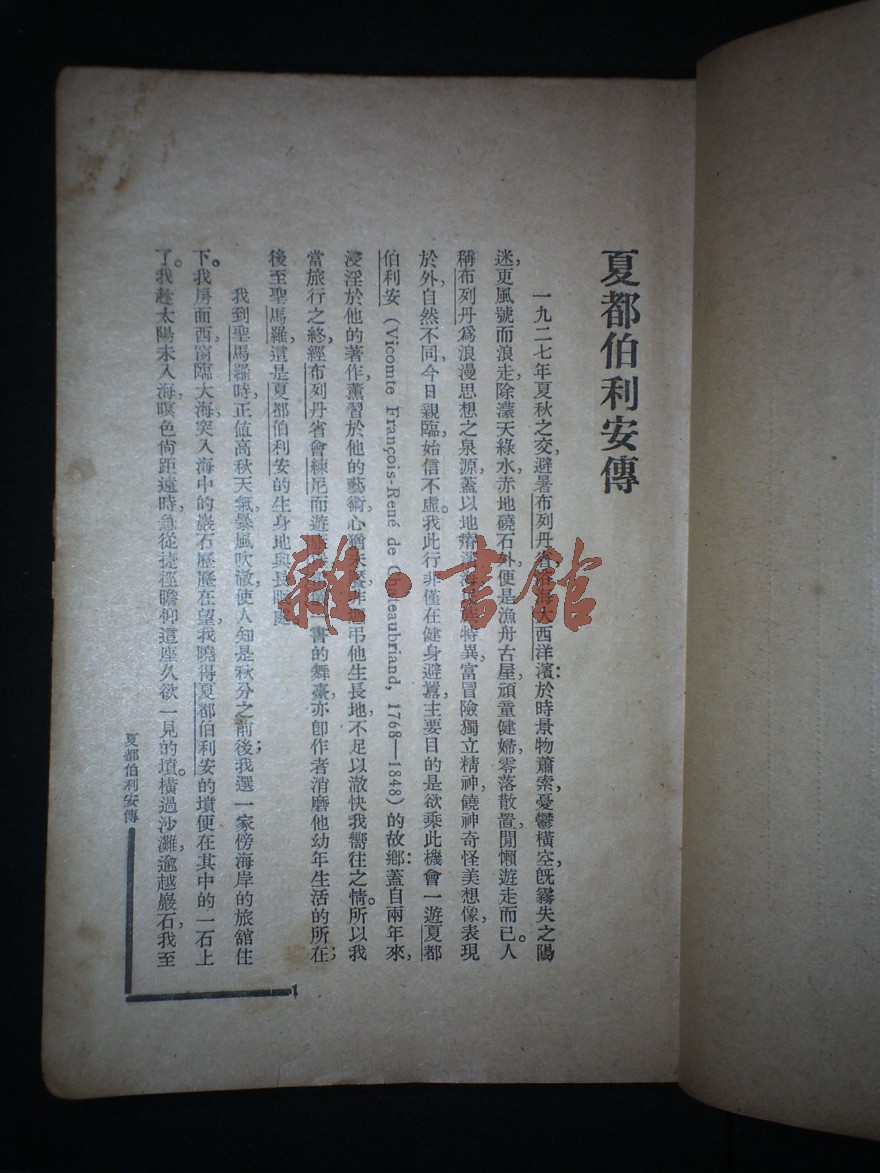 夏都伯利安傳
一九二七年夏秋之交，避暑布列丹省
大西洋濱：於時景物蕭索，憂鬱橫空，旣霧失之陽
迷，更風號而浪走，除濛天綠水，赤地磽石外，便是漁舟古屋，頑童健婦，零落散置，閒懶遊走而已。人
稱布列丹爲浪漫思想之泉源，蓋以地瘠
特異，富冒險獨立精神，饒神奇怪美想像，表現
於外，自然不同，今日親臨，始信不虛。我此行非僅在健身避囂，主要目的是欲乘此機會一遊夏都
伯利安（Vicomte François-René de Chateaubriand, 1768—1848）的故鄉：蓋自兩年來，
浸淫於他的著作，薰習於他的藝術，心
弔他生長地，不足以澈快我嚮往之情。所以我
當旅行之終，經布列丹省會練尼而遊
一書的舞臺，亦卽作者消磨他幼年生活的所在；
後至聖馬羅，這是夏都伯利安的生身地與長眠處。
我到聖馬羅時，正值高秋天氣，暴風吹澈，使人知是秋分之前後；我選一家傍海岸的旅舘住
下。我房面西，窗臨大海，突入海中的巖石歷歷在望，我曉得夏都伯利安的墳便在其中的一石上
了。我趁太陽未入海，暝色尙距遠時，急從捷徑瞻仰這座久欲一見的墳。橫過沙灘，逾越巖石，我至
夏都伯利安傳
1
雜·書館